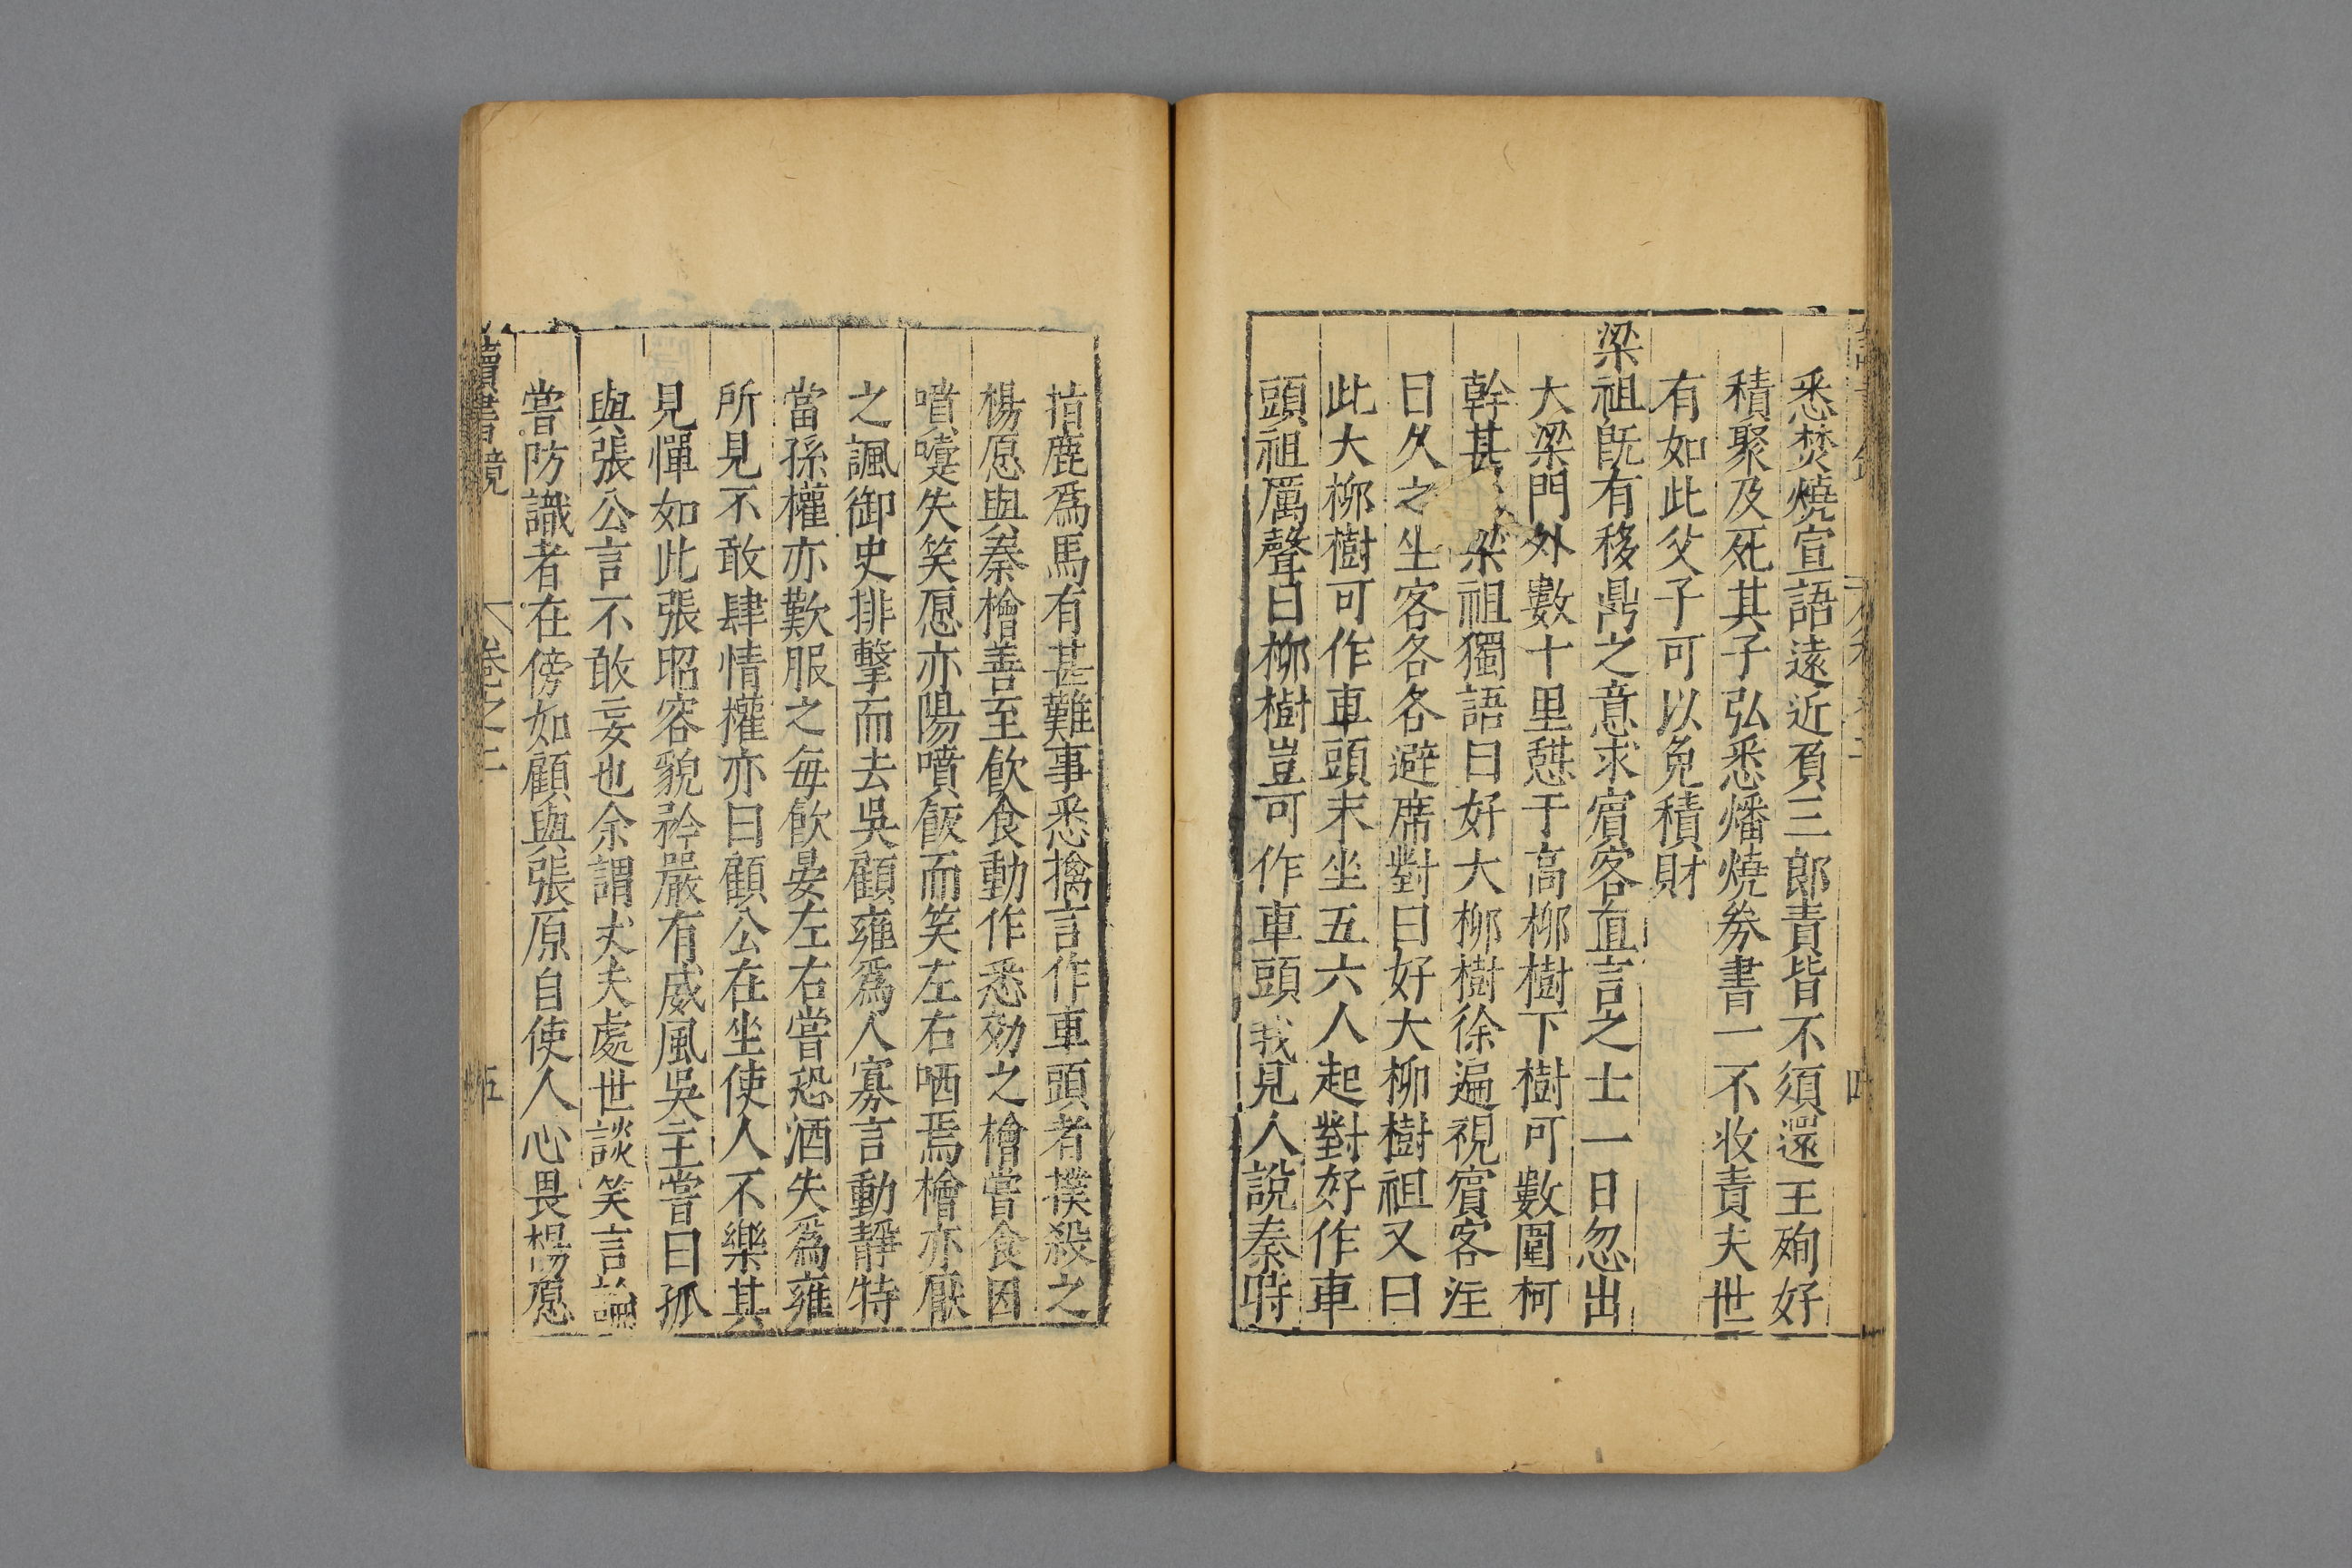 悉焚燒宣語遠近負三郎責皆不須還王殉好
積聚及死其子弘悉燔燒券書一不收責夫世
有如此父子可以免積財
梁祖旣有移鼎之意求賓客直言之士一日忽出
大梁門外數十里憇于高柳樹下樹可數圍柯
幹甚梁祖獨語曰好大柳樹徐遍視賓客注
日久之坐客各各避席對曰好大柳樹祖又曰
此大柳樹可作車頭末坐五六人起對好作車
頭祖厲聲曰柳樹豈可作車頭我見人說秦時
指鹿爲馬有甚難事悉擒言作車頭者撲殺之
楊愿與秦檜善至飲食動作悉効之檜嘗食因
噴嚏失笑愿亦陽噴飯而笑左右哂焉檜亦厭
之諷御史排擊而去吳顧雍爲人寡言動靜特
當孫權亦歎服之每飲晏左右嘗恐酒失爲雍
所見不敢肆情權亦曰顧公在坐使人不樂其
見憚如此張昭容貌矜嚴有威風吳主嘗曰孤
與張公言不敢妄也余謂丈夫處世談笑言論
嘗防識者在傍如顧與張原自使人心畏楊愿
讀書鏡
卷之二
五